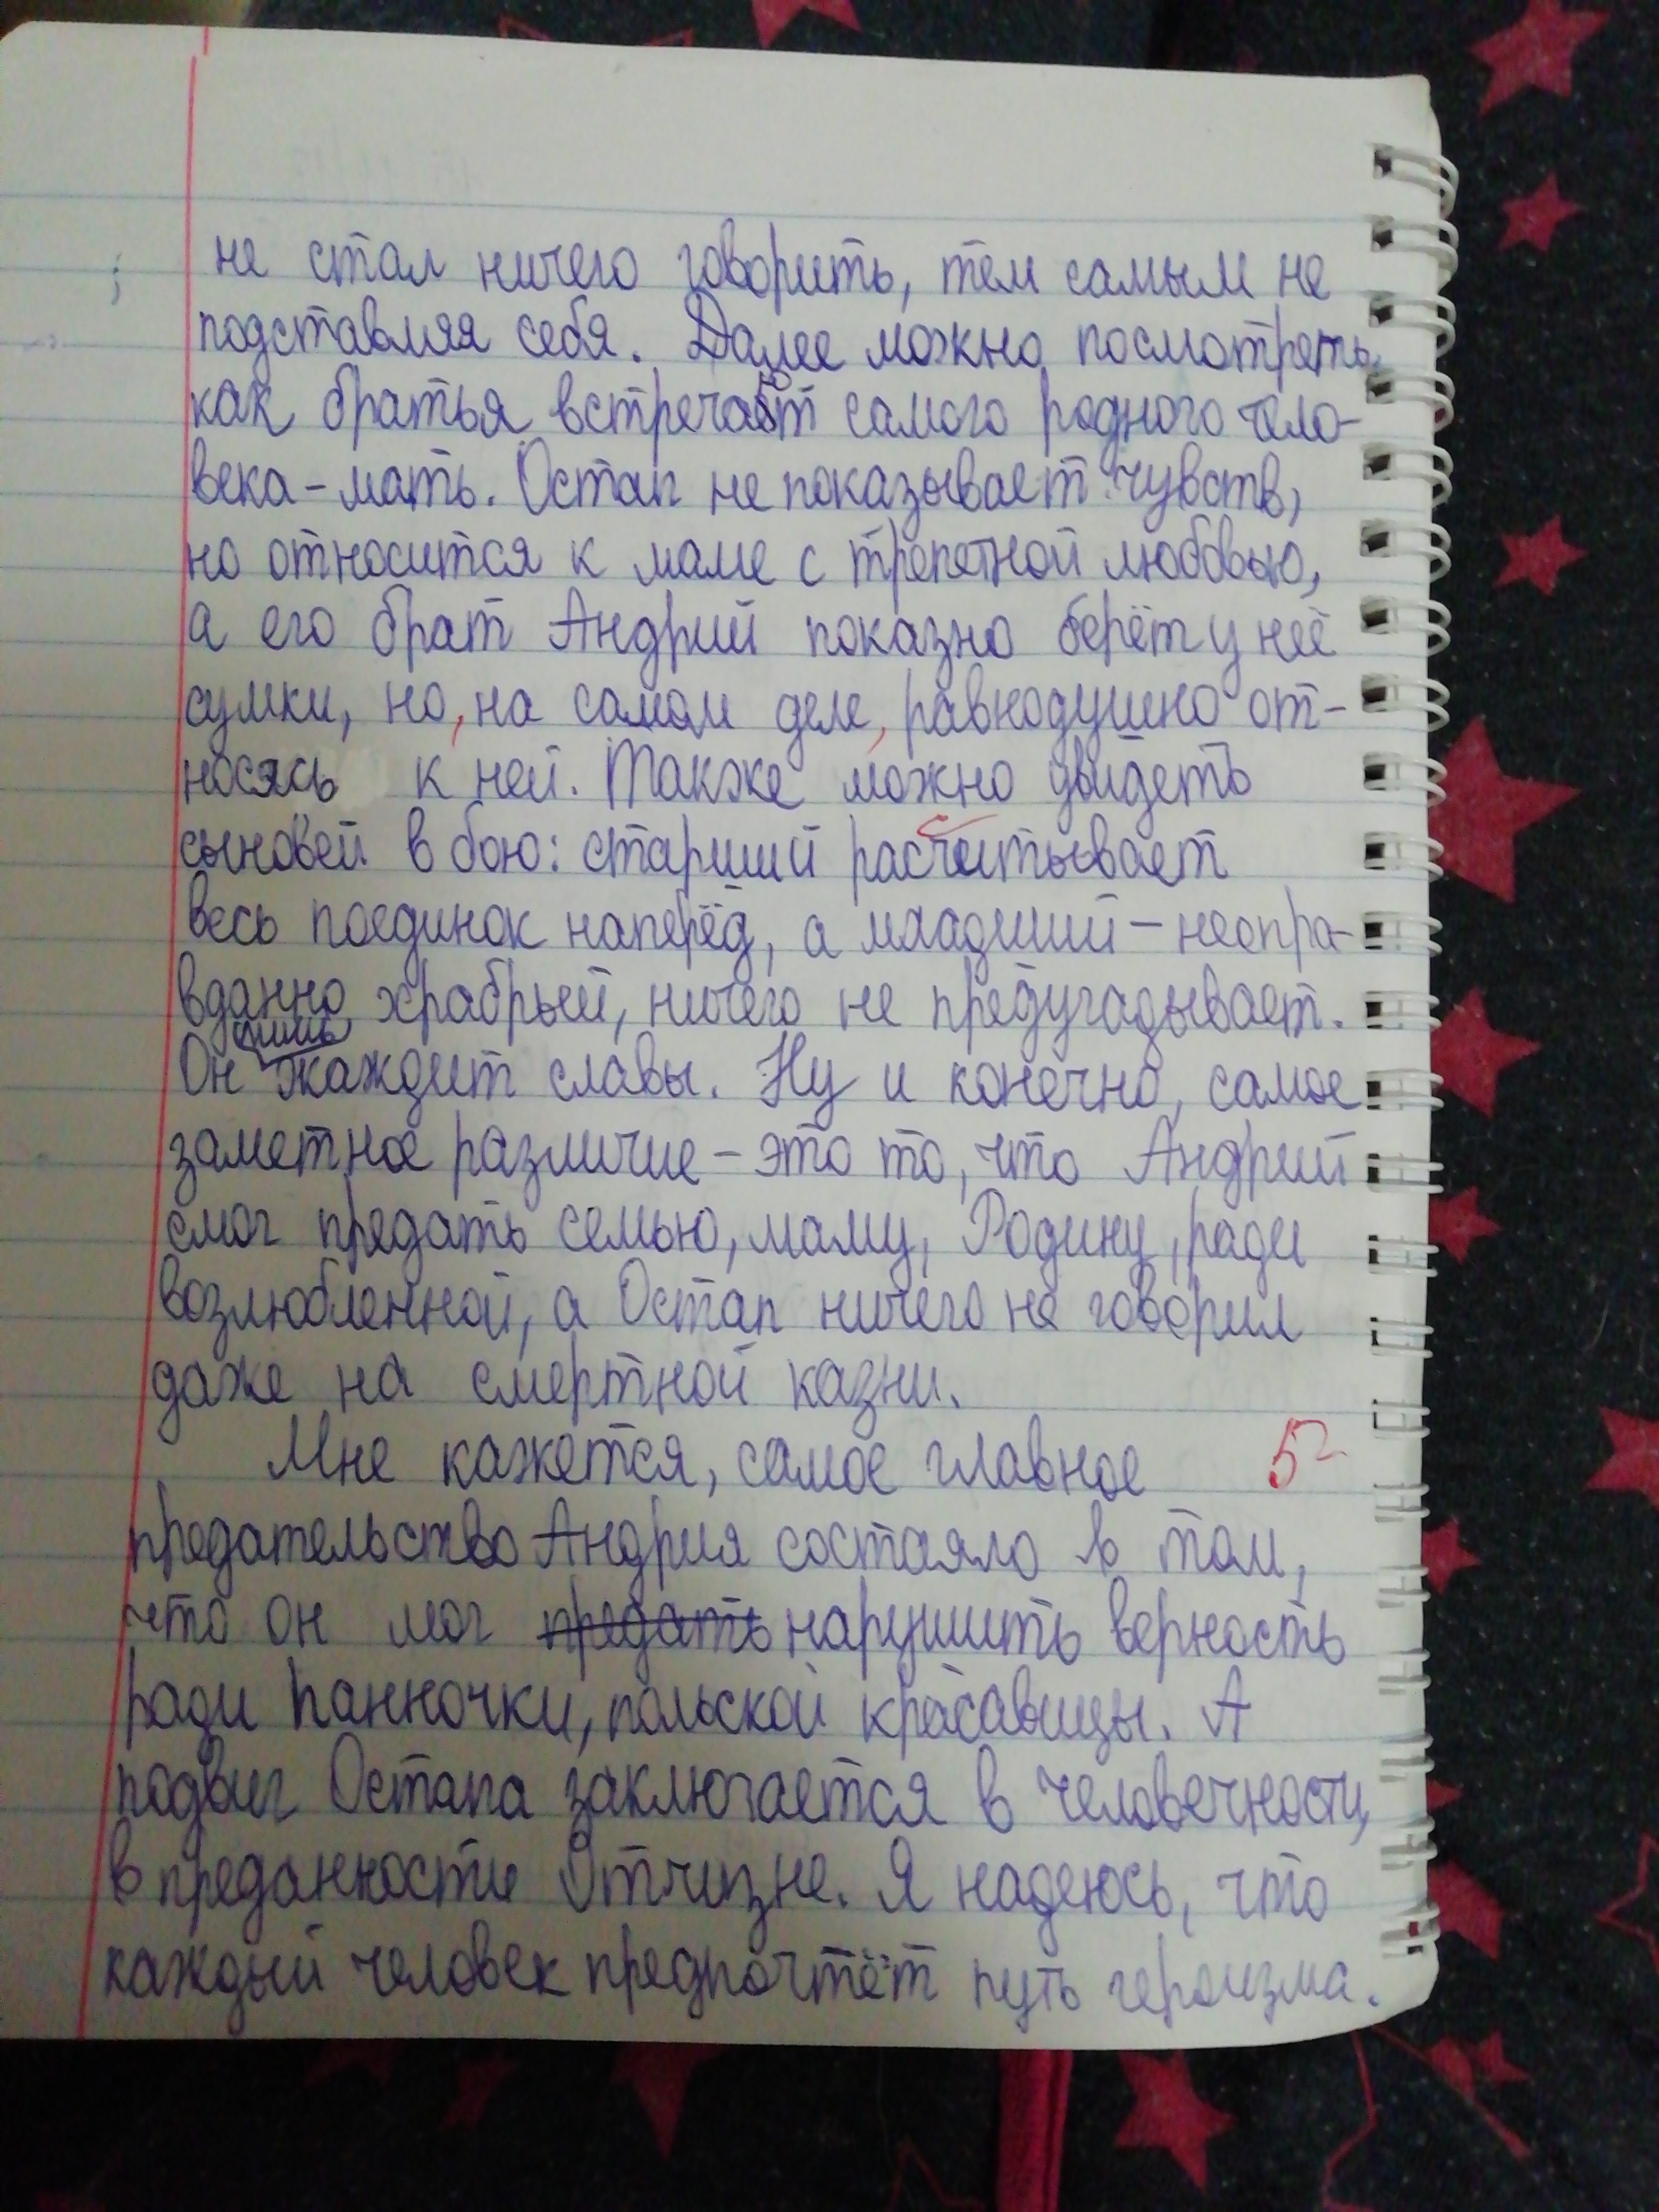 не стал ничего говорить, тем самым не
подставляя себя. Далее можно посмотреть,
как братья встречают самого родного чело-
века - мать. Остап не показывает чувств,
но относится к маме с трепетной любовью,
а его брат Андрий показно берёт у неё
сумки, но, на самом деле, равнодушно от-
носясь к ней. Также можно увидеть
сыновей в бою: старший расчитывает
весь поединок наперёд, а младший - неопра-
вданно храбрый, ничего не предугадывает.
лишь
Он жаждет славы. Ну и конечно, самое
заметное различие - это то, что Андрий
смог предать семью, маму, Родину, ради
возлюбленной, а Остап ничего не говорил
даже на смертной казни.
Мне кажется, самое главное 5
предательство Андрия состояло в том,
что он мог предать нарушить верность
ради панночки, польской красавицы. А
подвиг Остапа заключается в человечности,
в преданности Отчизне. Я надеюсь, что
каждый человек предпочтёт путь героизма.